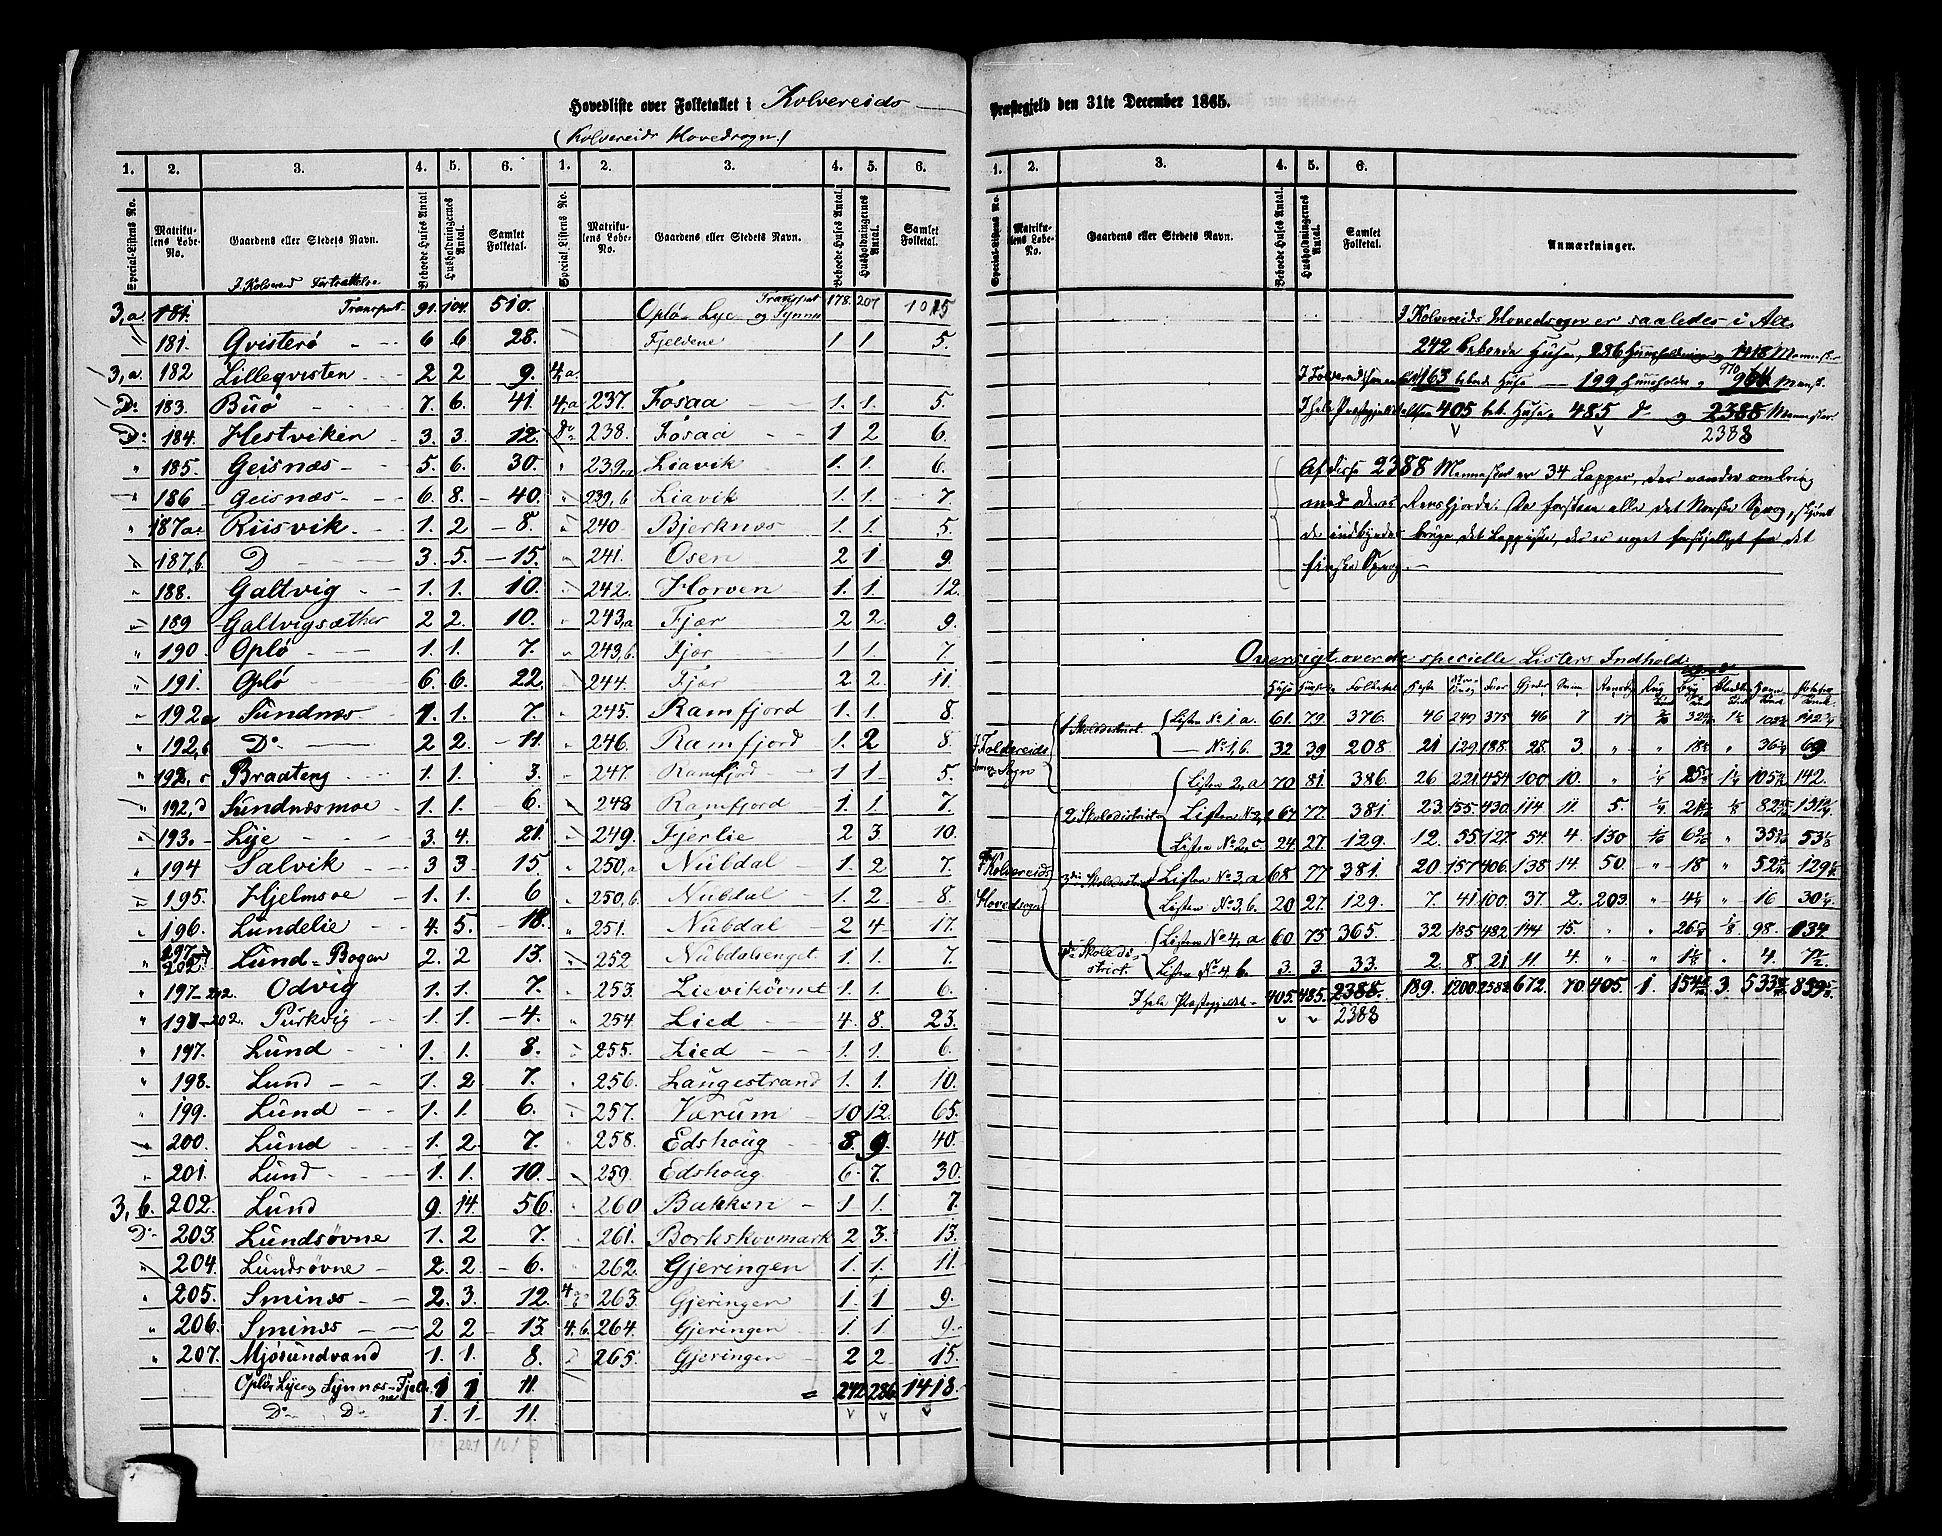 Hovedliste over Folketallet i Kolvereids
Præstegjeld den 31te December 1865.
(Kolvereids Hovedsogn.)
1. 2. 3. 4. 5. 6. 1. 2. 3. 4. 5. 6.
Special-Listens No. Matrikulens Løbe-No. Gaardens eller Stedets Navn. Beboede Huses Antal Husholdningernes Antal. Samlet Folketal. Special-Listens No. Matrikulens Løbe-No. Gaardens eller Stedets Navn. Beboede Huses Antal. Husholdningernes Antal. Samlet Folketal.
3,a 181. Transport 91. 104. 510.
" 181. Qvisterø 6 6 28.
3,a. 182 Lilleqvisten 2 2 9.
Do 183. Buø 7. 6. 41.
Do 184. Hestviken 3. 3. 12.
" 185. Geisnæs 5. 6. 30.
" 186 Geisnæs 6. 8. 40.
" 187a Riisvik 1. 2 8.
" 187,b. D 3. 5. 15.
" 188. Galtvig 1. 1. 10.
" 189 Galtvigsæther 2 2. 10.
" 190 Oplø 1. 1. 7.
" 191. Oplø 6. 6. 22.
" 192a Sundnæs 1. 1. 7.
" 192,b Do 2 2. 11.
" 192,c Braateng 1. 1. 3.
" 192,d Sundnæsmoe 1. 1. 6.
" 193. Lye 3. 4. 21.
" 194 Salvik 3 3. 15.
" 195. Hjelmsøe 1. 1. 6
" 196. Lundelie 4. 5. 18.
" 197-202. Lund-Bogen 2. 2 13.
" 197-202. Odvig 1. 1. 7.
" 197-202. Purkvig 1. 1. 4.
" 197. Lund 1. 1. 8.
" 198. Lund 1. 2. 7.
" 199. Lund 1. 1. 6.
" 200. Lund 1. 2. 7.
" 201. Lund 1. 1. 10.
3,b. 202. Lund 9. 14. 56.
Do 203. Lundsøvne 1. 2 7.
" 204. Lundsøvne 2. 2. 6.
" 205. Sminæs 2. 3. 12.
" 206. Sminæs 2 2 13.
" 207. Mjøsundvand 1. 1. 8.
Oplø, Lye og Synnæs-Fjeldene 1 1 11
Do Do 1. 1. 11.
Oplø Lye og Synnæs Transport 178. 207 1015
Fjeldene 1 1 5.
4,a.
4,a 237. Fosaa 1. 1. 5.
Do 238. Fosaa 1 2 6.
" 239,a Liavik 1. 1. 6.
" 239,b Liavik 1. 1. 7.
" 240 Bjerknæs 1. 1. 5.
" 241. Osen 2 1 9.
" 242. Horven 1. 1. 12.
" 243,a Fjær 2 2 9.
" 243,b. Fjær 1. 1. 7
" 244. Fjær 2 2. 11.
" 245. Ramfjord 1. 1. 8.
" 246. Ramfjord 1. 2 8.
" 247. Ramfjord 1 1 5.
" 248 Ramfjord 1 1 7.
" 249. Fjerlie 2 3. 10.
" 250,a Nubdal 1. 2 7.
" 250,b. Nubdal 1. 2 8.
" 251. Nubdal 2 4 17.
" 252 Nubdalsenget 1. 1. 7.
" 253. 1 1 6.
" 254. Lied 4. 8. 23.
" 255. Lied 1. 1. 6.
" 256. Langestrand 1. 1. 10.
" 257. Værum 10 12. 65.
" 258. Edshoug 8. 9. 40.
" 259. Edshoug 6. 7. 30.
" 260 Bakken 1 1. 7.
" 261. Borkskovmark 2 3. 13.
" 262. Gjeringen 1. 1. 11.
263. Gjeringen 1 1 9.
4.b. 264. Gjeringen 1. 1 9.
265. Gjeringen 2 2. 15.
= 242 286 1418.
1. 2. 3. 4. 5. 6.
Special-Listens No. Matrikulens Løbe-No. Gaardens eller Stedets Navn. Beboede Huses Antal. Husholdningernes Antal. Samlet Folketal. Anmærkninger.
I Kolvereids Hovedsogn er saaledes i Alt
242 beboede Huse, 286 Husholdninger og 1418 Mennesker
163 beboed Huse — 199 Hushold. og 970 Mensk.
I hele Præstegjeldet altsaa 405 beb. Huse, 485 do og 2388 Mennesker
2388
Af disse 2388 Mennesker er 34 Lapper, der vandre omkring
med deres Renshjorde. De forstaae alle det Norske Sprog, skjønt
de indbyrdes bruge det Lappiske, der er noget forskjelligt fra det
finske Sprog.
Oversigt over de specielle Listers Indhold.
Huse Folketal Heste Faar Gjeder Sviin Rensd. Rug Byg Havre Poteter
I Foldereids Annex Sogn
1 Skoledistrict Listen No 1 a. 61. 79. 376. 46 249 375 46 7 17
No 1,b. 32 39 208. 21 129 188. 28. 3 " "
2 Skoledistrict Listen 2,a 70 81. 386. 26 221 454 100 10. "
67 77. 381. 23 155 430. 114 11 5
Listen No 2,c 24 27. 129. 12. 55 127. 54. 4. 130
I Kolvereids Hovedsogn
3die Skoledistrict Listen No 3,a 68 77 381. 20 157 406. 138 14. 50
Listen No 3,b. 20 27. 129. 7. 41 100. 37. 2. 203
4de Skoledistrict Listen No 4,a 60 75 365. 32 185 482 144 15.
Listen No 4,b. 3. 3. 33. 2. 8. 21 11 4.
I hele Præstegjeldet 405 485. 2388. 189. 1200 2583 672. 70 405. 1.
2388